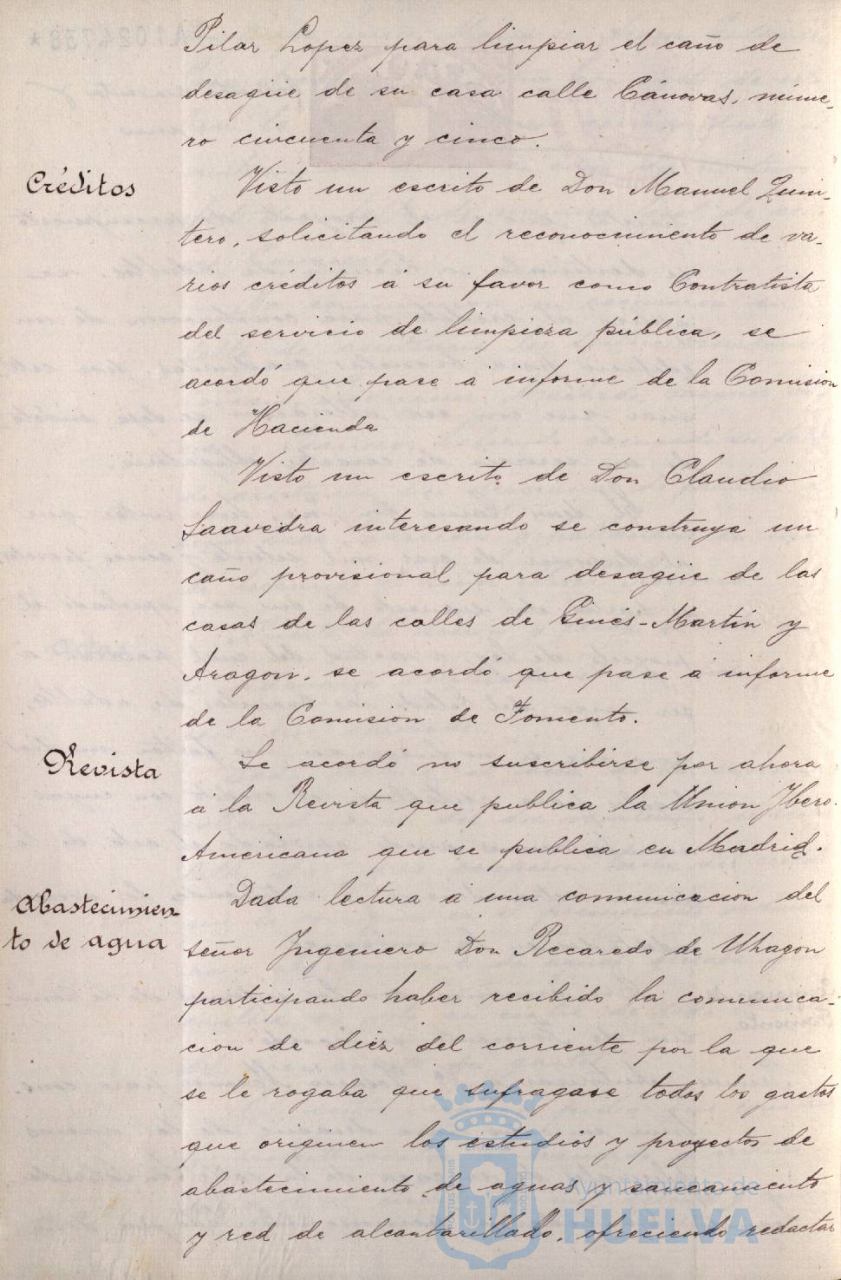 Pilar Lopez para limpiar el caño de
desagüe de su casa calle Cánovas, núme-
ro cincuenta y cinco.
Créditos
Visto un escrito de Don Manuel Quin-
tero, solicitando el reconocimiento de va-
rios créditos á su favor como Contratista
del servicio de limpieza pública, se
acordó que pase á informe de la Comision
de Hacienda
Visto un escrito de Don Claudio
Saavedra interesando se construya un
caño provisional para desagüe de las
casas de las calles de Ginés-Martin y
Aragon, se acordó que pase á informe
de la Comision de Fomento.
Revista
Se acordó no suscribirse por ahora
á la Revista que publica la Union Ybero-
Americana que se publica en Madrid.
Abastecimien-
to de agua
Dada lectura á una comunicacion del
señor Yngeniero Don Recaredo de Uhagon
participando haber recibido la comunica-
cion de diéz del corriente por la que
se le rogaba que sufragase todos los gastos
que originen los estudios y proyectos de
abastecimiento de aguas y saneamiento
y red de alcantarillado, ofreciendo redactar
Ayuntamiento de
HUELVA